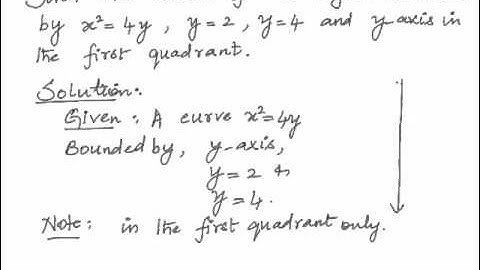 by x²=4y , y=2 , y=4 and y-axis in
the first quadrant.
Solution:-
Given : A curve x²=4y
Bounded by, y-axis,
y=2 &
y=4.
Note: in the first quadrant only.